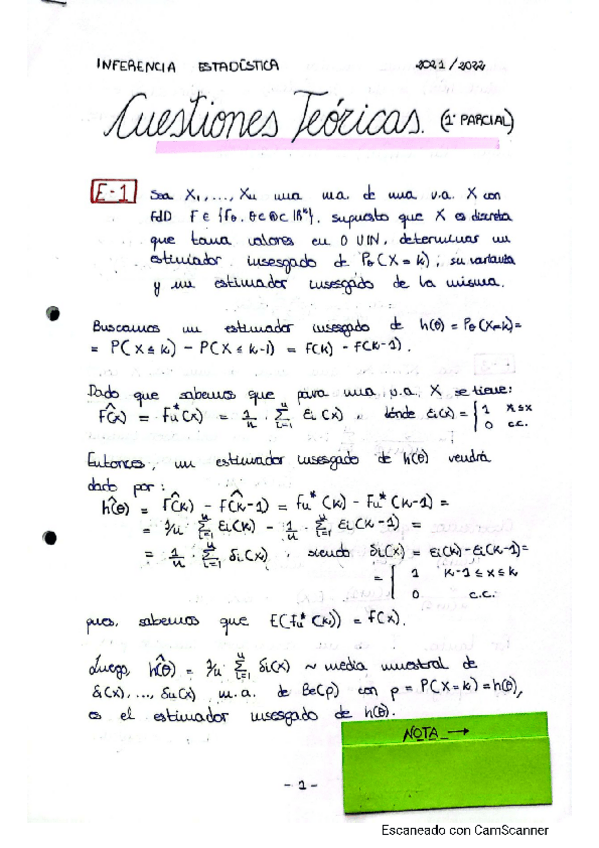 INFERENCIA ESTADÍSTICA 2021/2022
Cuestiones Teóricas. (1º PARCIAL)
E-1 Sea X₁,..., Xn una ma. de una v.a. X con
FdD F ∈ {Fθ, θ∈Θ⊂ℝᵏ}, supuesto que X es discreta
que toma valores en 0 UIN, determinar un
estimador insesgado de Pθ(X=k), su varianza
y un estimador insesgado de la misma.
Buscamos un estimador insesgado de h(θ) = Pθ(X=k) =
= P(X≤k) - P(X≤k-1) = F(k) - F(k-1).
Dado que sabemos que para una v.a. X se tiene:
F̂(x) = Fn*(x) = 1/n · Σⁿᵢ₌₁ εi(x), dónde εi(x) = { 1 X≤x
0 c.c.
Entonces, un estimador insesgado de h(θ) vendrá
dado por:
ĥ(θ) = F̂(k) - F̂(k-1) = Fn*(k) - Fn*(k-1) =
= 1/n Σⁿᵢ₌₁ εi(k) - 1/n · Σⁿᵢ₌₁ εi(k-1) =
= 1/n · Σⁿᵢ₌₁ δi(x), siendo δi(x) = εi(k)-εi(k-1) =
= { 1 k-1≤x≤k
0 c.c.
pues, sabemos que E(Fn*(k)) = F(x).
Luego, ĥ(θ) = 1/n Σⁿᵢ₌₁ δi(x) ~ media muestral de
δi(x),..., δn(x) m.a. de Be(p) con p = P(X=k) = h(θ),
es el estimador insesgado de h(θ).
NOTA →
- 1 -
Escaneado con CamScanner